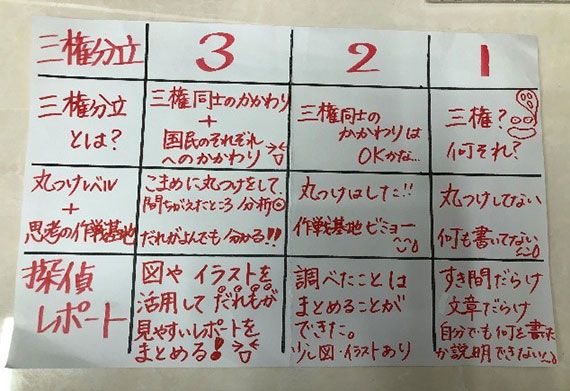 三権分立
3
2
1
三権分立
とは?
三権同士のかかわり
+
国民のそれぞれ
へのかかわり
三権同士の
かかわりは
OKかな…
三権?
何それ?
丸つけレベル
+
思考の作戦基地
こまめに丸つけをして、
間ちがえたところ分析◎
だれがよんでも分かる!!
丸つけはした!!
作戦基地ビミョー
丸つけしてない
何も書いてない
探偵
レポート
図やイラストを
活用してだれもが
見やすいレポートを
まとめる!
調べたことは
まとめることが
できた。
少し図・イラストあり
すき間だらけ
文章だらけ
自分でも何を書いた
か説明できない